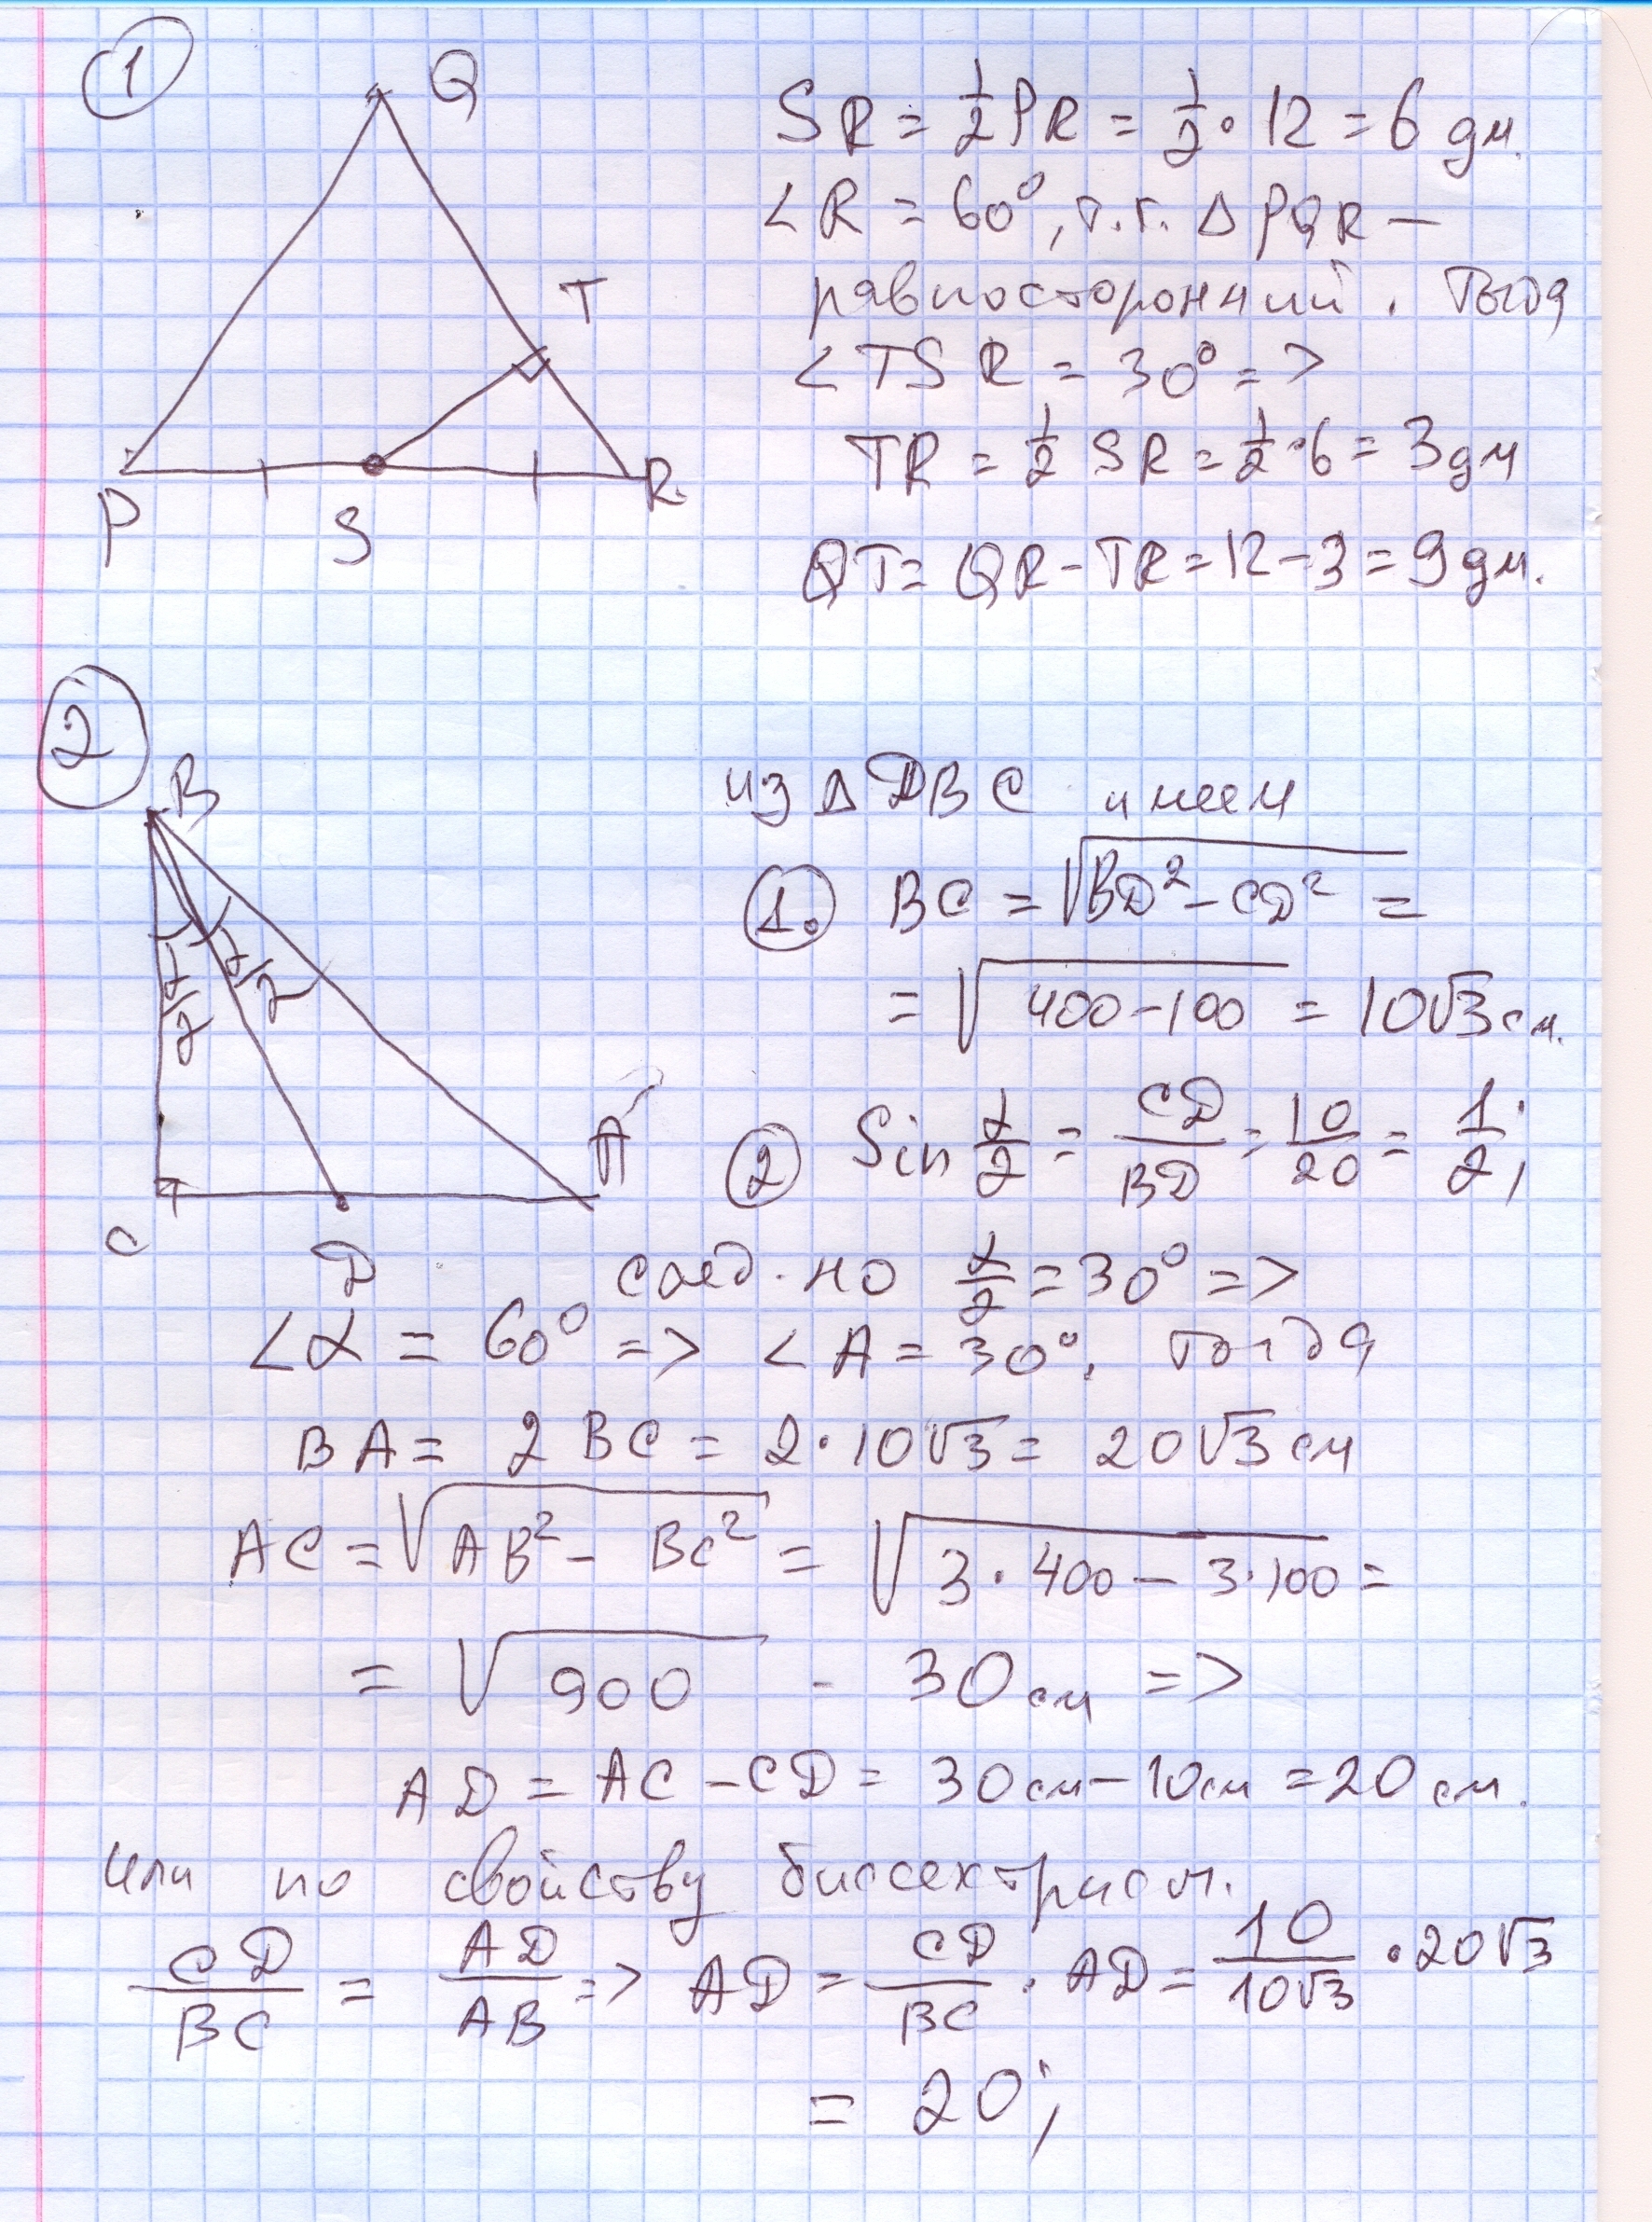 1
Q
T
P
S
R
SR = 1/2 PR = 1/2 · 12 = 6 дм.
∠R = 60°, т.к. ΔPQR –
равносторонний. Тогда
∠TSR = 30° =>
TR = 1/2 SR = 1/2 · 6 = 3 дм
QT = QR - TR = 12 - 3 = 9 дм.
2
B
α/2 α/2
A
C
D
из ΔDBC имеем
1. BC = √(BD² - CD²) =
= √(400 - 100) = 10√3 см.
2 Sin α/2 = CD/BD = 10/20 = 1/2;
след-но α/2 = 30° =>
∠α = 60° => ∠A = 30°. Тогда
BA = 2BC = 2 · 10√3 = 20√3 см
AC = √(AB² - BC²) = √(3 · 400 - 3 · 100) =
= √900 - 30 см =>
AD = AC - CD = 30 см - 10 см = 20 см.
или по свойству биссектрисы.
CD/BC = AD/AB => AD = CD/BC · AD = 10/10√3 · 20√3
= 20;